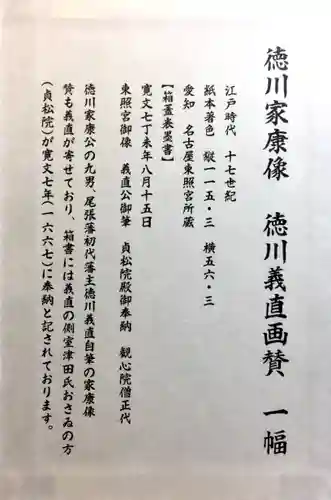 徳川家康像　徳川義直画賛　一幅
江戸時代　十七世紀
紙本着色　縦一一五・三　横五六・三
愛知　名古屋東照宮所蔵
【箱蓋表墨書】
寛文七丁未年八月十五日
東照宮御像　義直公御筆　貞松院殿御奉納　観心院僧正代
徳川家康公の九男、尾張藩初代藩主徳川義直自筆の家康像
賛も義直が寄せており、箱書には義直の側室津田氏おさゐの方
（貞松院）が寛文七年（一六六七）に奉納と記されております。